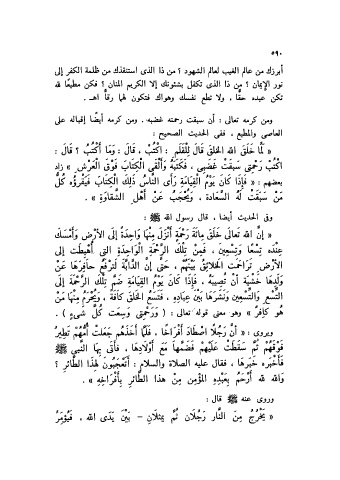 ٥٩٠
أبرزك من عالم الغيب لعالم الشهود ؟ من ذا الذى استنقذك من ظلمة الكفر إلى
نور الإيمان ؟ من ذا الذى تكفل بشئونك إلا الكريم المنان ؟ فكن مطيعا لله
تكن عبده حقًا ، ولا تطع نفسك وهواك فتكون لهما رقًا اهـ .
ومن كرمه تعالى : أن سبقت رحمته غضبه . ومن كرمه أيضًا إقباله على
العاصى والمطيع ، ففى الحديث الصحيح :
« لَمَّا خَلَقَ اللهُ الخَلْقَ قَالَ لِلْقَلَمِ : اكْتُبْ ، قَالَ : وَمَا أَكْتُبُ ؟ قَالَ :
اكْتُبْ رَحْمَتِى سَبَقَتْ غَضَبِى ، فَكَتَبَهُ وَأَلْقَى الْكِتَابَ فَوْقَ الْعَرْشِ » زاد
بعضهم : « فَإِذَا كَانَ يَوْمُ الْقِيَامَةِ رَأَى النَّاسُ ذَلِكَ الْكِتَابَ فَيَقْرَؤُهُ كُلُّ
مَنْ سَبَقَتْ لَهُ السَّعَادَةُ ، وَيُحْجَبُ عَنْ أَهْلِ الشَّقَاوَةِ » .
وفى الحديث أيضا ، قال رسول الله ﷺ :
« إِنَّ اللهَ تَعَالَى خَلَقَ مِائَةَ رَحْمَةٍ أَنْزَلَ مِنْهَا وَاحِدَةً إِلَى الْأَرْضِ وَأَمْسَكَ
عِنْدَهُ تِسْعًا وَتِسْعِينَ ، فَمِنْ تِلْكَ الرَّحْمَةِ الْوَاحِدَةِ الَّتِى أُهْبِطَتْ إِلَى
الْأَرْضِ تَرَاحَمَتِ الْخَلَائِقُ بَيْنَهُمْ ، حَتَّى إِنَّ الدَّابَّةَ لَتَرْفَعُ حَافِرَهَا عَنْ
وَلَدِهَا خَشْيَةَ أَنْ تُصِيبَهُ . فَإِذَا كَانَ يَوْمُ الْقِيَامَةِ ضَمَّ تِلْكَ الرَّحْمَةَ إِلَى
التِّسْعِ وَالتِّسْعِينَ وَنَشَرَهَا بَيْنَ عِبَادِهِ ، فَتَسَعُ الْخَلْقَ كَافَّةً ، وَيُحْرَمُ مِنْهَا مَنْ
هُوَ كَافِرٌ » وهو معنى قوله تعالى : ( وَرَحْمَتِى وَسِعَتْ كُلَّ شَىْءٍ ) .
ويروى : « أَنَّ رَجُلًا اصْطَادَ أَفْرَاخًا ، فَلَمَّا أَخَذَهُمْ جَعَلَتْ أُمُّهُمْ تَطِيرُ
فَوْقَهُمْ ثُمَّ سَقَطَتْ عَلَيْهِمْ فَضَمَّهَا مَعَ أَوْلَادِهَا ، فَأَتَى بِهَا النَّبِى ﷺ
فَأَخْبَرَهُ خَبَرَهَا ، فقال عليه الصلاة والسلام : أَتَعْجَبُونَ لِهَذَا الطَّائِرِ ؟
وَاللهِ للهُ أَرْحَمُ بِعَبْدِهِ الْمُؤْمِنِ مِنْ هَذَا الطَّائِرِ بِأَفْرَاخِهِ » .
وروى عنه ﷺ قال :
« يَخْرُجُ مِنَ النَّارِ رَجُلَانِ ثُمَّ يَمْثُلَانِ – بَيْنَ يَدَىِ اللهِ ، فَيُؤْمَرُ